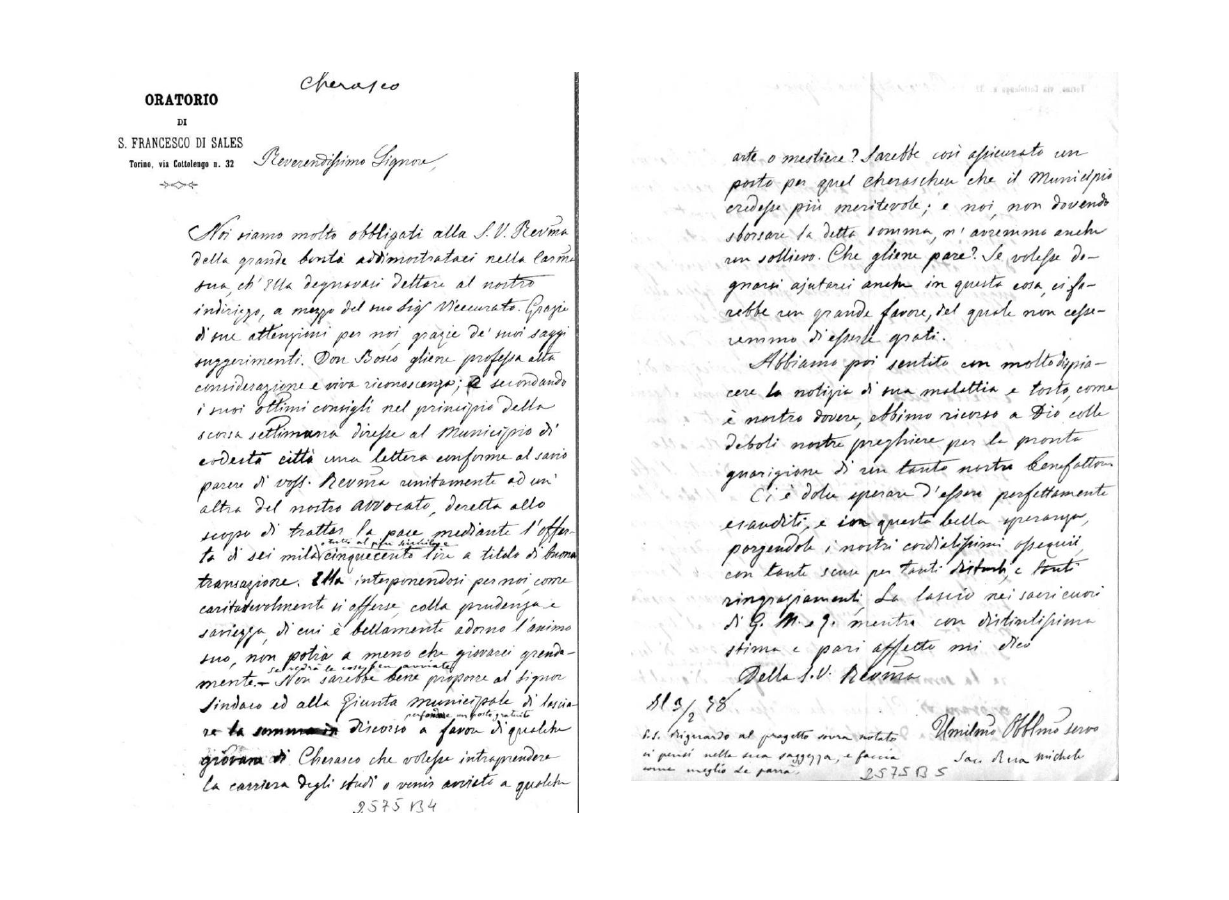 Cherasco
ORATORIO
DI
S. FRANCESCO DI SALES
Torino, via Cottolengo n. 32
Reverendissimo Signore,
Noi siamo molto obbligati alla S. V. Revma
della grande bontà addimostrataci nella Carma
sua, ch'Ella degnavasi dettare al nostro
indirizzo, a mezzo del suo Sigr Vicecurato. Grazie
di sue attenzioni per noi, grazie de' suoi saggi
suggerimenti. Don Bosco gliene professa alta
considerazione e viva riconoscenza; e secondando
i suoi ottimi consigli nel principio della
scorsa settimana diresse al Municipio di
codesta città una lettera conforme al savio
parere di voss. Revma unitamente ad un'
altra del nostro avvocato, diretta allo
scopo di trattar la pace mediante l'offer-
ta di sei mila cinquecento lire a titolo di buona
transazione. Ella interponendosi per noi, come
caritatevolmente si offerse, colla prudenza e
saviezza, di cui è bellamente adorno l'animo
suo, non potrà a meno che giovarci grande-
se vedrà la cosa ben avviata
mente. – Non sarebbe bene proporre al Signor
Sindaco ed alla Giunta municipale di lascia-
per un posto gratuito
re la somma in discorso a favore di qualche
giovane di Cherasco che volesse intraprendere
la carriera degli studi o venir avviato a qualche
2575 B 4
arte o mestiere? Sarebbe così assicurato un
posto per quel Cheraschese che il Municipio
credesse più meritevole; e noi, non dovendo
sborsare la detta somma, n'avremmo anche
un sollievo. Che gliene pare? Se volesse de-
gnarsi ajutarci anche in questa cosa, ci fa-
rebbe un grande favore, del quale non cesse-
remmo di esserle grati.
Abbiamo poi sentito con molto dispia-
cere la notizia di sua malattia e tosto, come
è nostro dovere, ebbimo ricorso a Dio colle
deboli nostre preghiere per la pronta
guarigione di un tanto nostro benefattore.
Ci è dolce sperare d'essere perfettamente
esauditi, e con questa bella speranza,
porgendole i nostri cordialissimi ossequii,
con tante scuse per tanti disturbi, e tanti
ringraziamenti, La lascio nei sacri cuori
di G. M. e G. mentre con distintissima
stima e pari affetto mi dico
Della S. V. Revma
Il 3/2 78
Umilmo Obblmo servo
Sac. Rua Michele
P.S. Riguardo al progetto sovra notato
ci pensi nella sua saggezza, e faccia
come meglio Le parrà.
2575 B 5